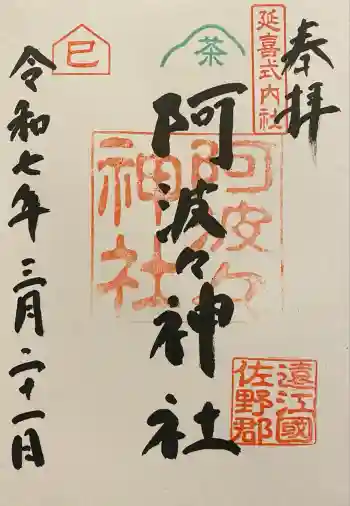 奉拝
延喜式内社
茶
巳
阿波々神社
阿波々
神社
遠江國
佐野郡
令和七年三月二十一日